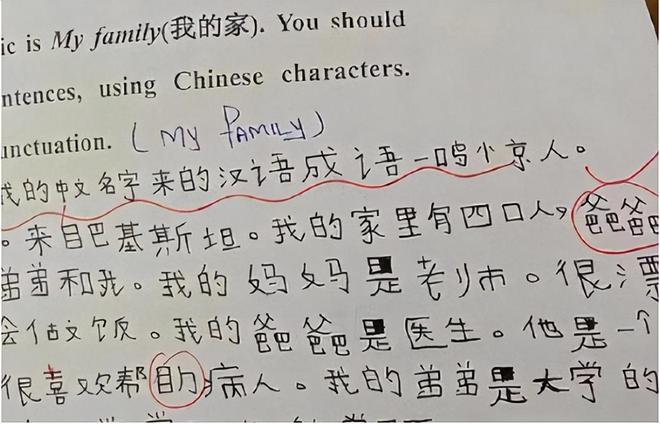 ic is My family(我的家). You should
ntences, using Chinese characters.
unctuation. (MY FAMILY)
我的中文名字来的汉语成语一鸣惊人。
。来自巴基斯坦。我的家里有四口人,爸爸
弟弟和我。我的妈妈是老师。很漂
会做饭。我的爸爸是医生。他是一个
很喜欢帮助病人。我的弟弟是大学的